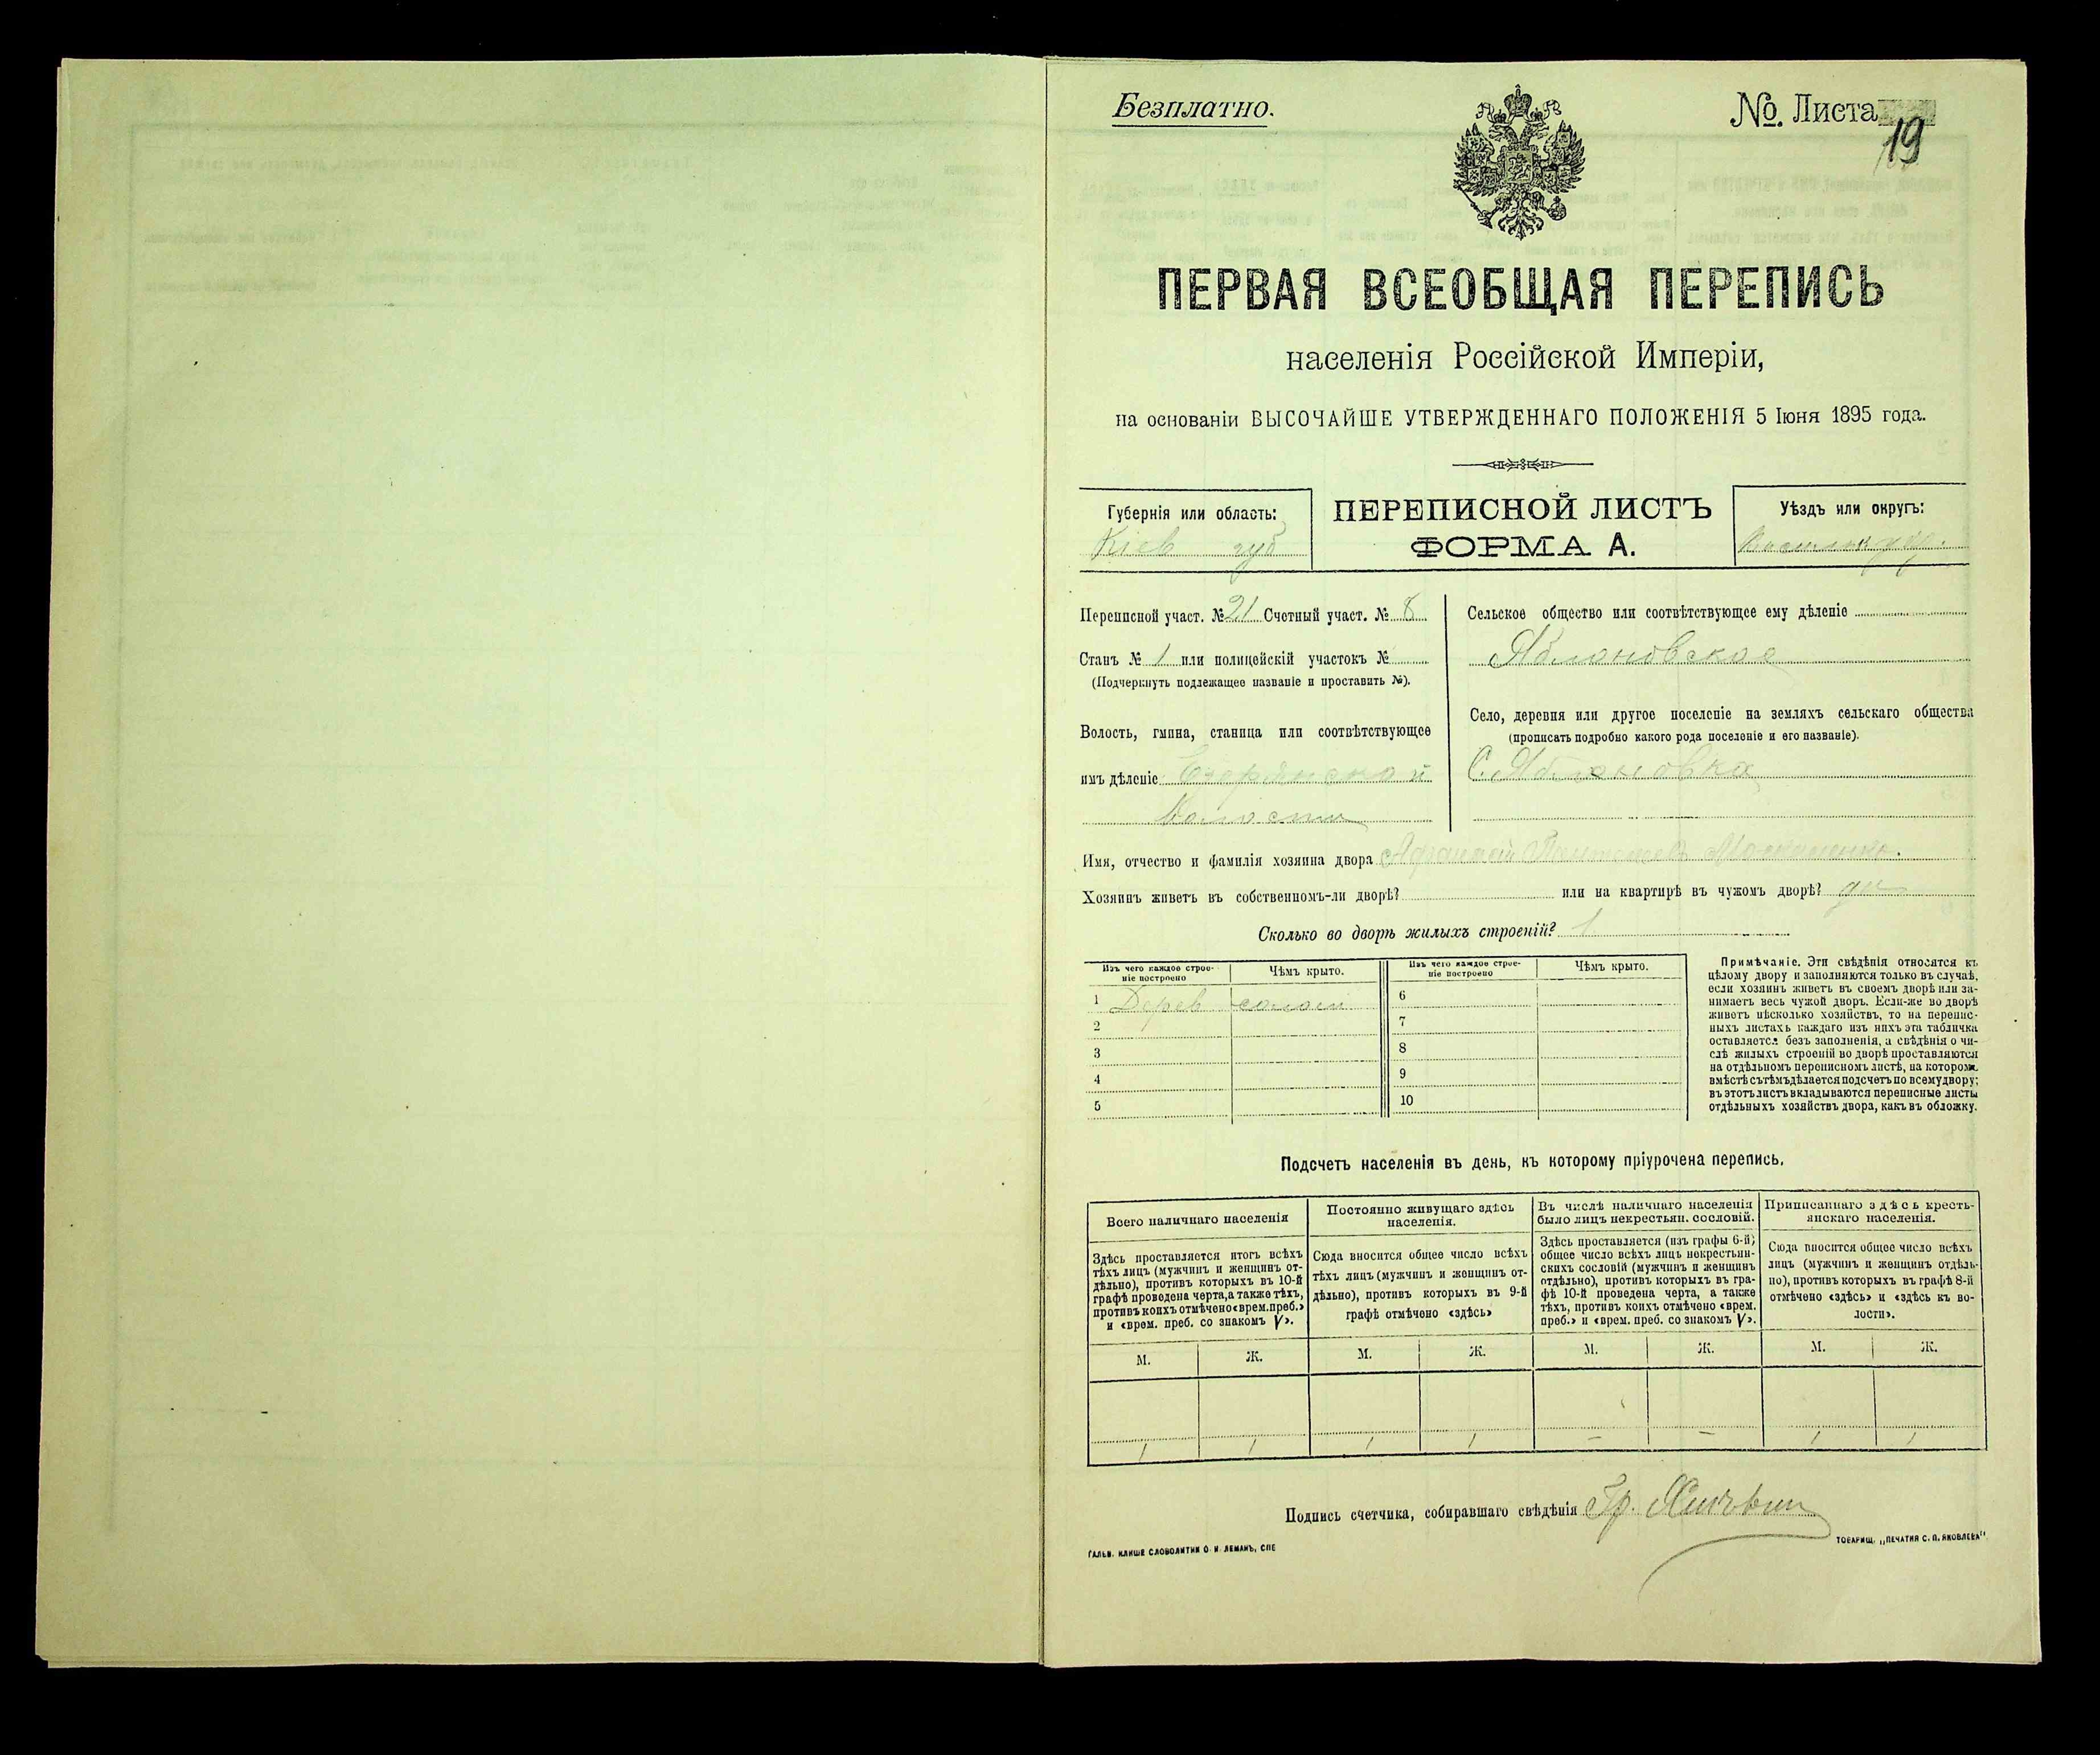 Безплатно.
№. Листа
19
ПЕРВАЯ ВСЕОБЩАЯ ПЕРЕПИСЬ
населенія Россійской Имперіи,
на основаніи ВЫСОЧАЙШЕ УТВЕРЖДЕННАГО ПОЛОЖЕНІЯ 5 Іюня 1895 года.
Губернія или область:
Кіев губ
ПЕРЕПИСНОЙ ЛИСТЪ
ФОРМА А.
Уѣздъ или округъ:
Переписной участ. № 21 Счетный участ. № 8
Станъ № 1 или полицейскій участокъ №
(Подчеркнуть подлежащее названіе и проставить №).
Волость, гмина, станица или соотвѣтствующее
имъ дѣленіе
Волости
Сельское общество или соотвѣтствующее ему дѣленіе
Яблоновское
Село, деревня или другое поселеніе на земляхъ сельскаго общества
(прописать подробно какого рода поселеніе и его названіе).
С. Яблоновка
Имя, отчество и фамилія хозяина двора
Хозяинъ живетъ въ собственномъ-ли дворѣ? или на квартирѣ въ чужомъ дворѣ? да
Сколько во дворѣ жилыхъ строеній? 1
Изъ чего каждое строе-
ніе построено
Чѣмъ крыто.
Изъ чего каждое строе-
ніе построено
Чѣмъ крыто.
1 Дерев солом
2
3
4
5
6
7
8
9
10
Примѣчаніе. Эти свѣдѣнія относятся къ
цѣлому двору и заполняются только въ случаѣ,
если хозяинъ живетъ въ своемъ дворѣ или за-
нимаетъ весь чужой дворъ. Если-же во дворѣ
живетъ нѣсколько хозяйствъ, то на перепис-
ныхъ листахъ каждаго изъ нихъ эта табличка
оставляется безъ заполненія, а свѣдѣнія о чи-
слѣ жилыхъ строеній во дворѣ проставляются
на отдѣльномъ переписномъ листѣ, на которомъ
вмѣстѣ съ тѣмъ дѣлается подсчетъ по всему двору;
въ этотъ листъ вкладываются переписные листы
отдѣльныхъ хозяйствъ двора, какъ въ обложку.
Подсчетъ населенія въ день, къ которому пріурочена перепись.
Всего наличнаго населенія
Здѣсь проставляется итогъ всѣхъ
тѣхъ лицъ (мужчинъ и женщинъ от-
дѣльно), противъ которыхъ въ 10-й
графѣ проведена черта, а также тѣхъ,
противъ коихъ отмѣчено «врем. преб.»
и «врем. преб. со знакомъ V».
Постоянно живущаго здѣсь
населенія.
Сюда вносится общее число всѣхъ
тѣхъ лицъ (мужчинъ и женщинъ от-
дѣльно), противъ которыхъ въ 9-й
графѣ отмѣчено «здѣсь»
Въ числѣ наличнаго населенія
было лицъ некрестьян. сословій.
Здѣсь проставляется (изъ графы 6-й)
общее число всѣхъ лицъ некрестьян-
скихъ сословій (мужчинъ и женщинъ
отдѣльно), противъ которыхъ въ гра-
фѣ 10-й проведена черта, а также
тѣхъ, противъ коихъ отмѣчено «врем.
преб.» и «врем. преб. со знакомъ V».
Приписаннаго здѣсь кресть-
янскаго населенія.
Сюда вносится общее число всѣхъ
лицъ (мужчинъ и женщинъ отдѣль-
но), противъ которыхъ въ графѣ 8-й
отмѣчено «здѣсь» и «здѣсь къ во-
лости».
М. Ж. М. Ж. М. Ж. М. Ж.
1 1 1 1 — — 1 1
Подпись счетчика, собиравшаго свѣдѣнія Гр.
ГАЛЬВ. КЛИШЕ СЛОВОЛИТНИ О. И. ЛЕМАНЪ, СПБ
ТОВАРИЩ. „ПЕЧАТНЯ С. П. ЯКОВЛЕВА"